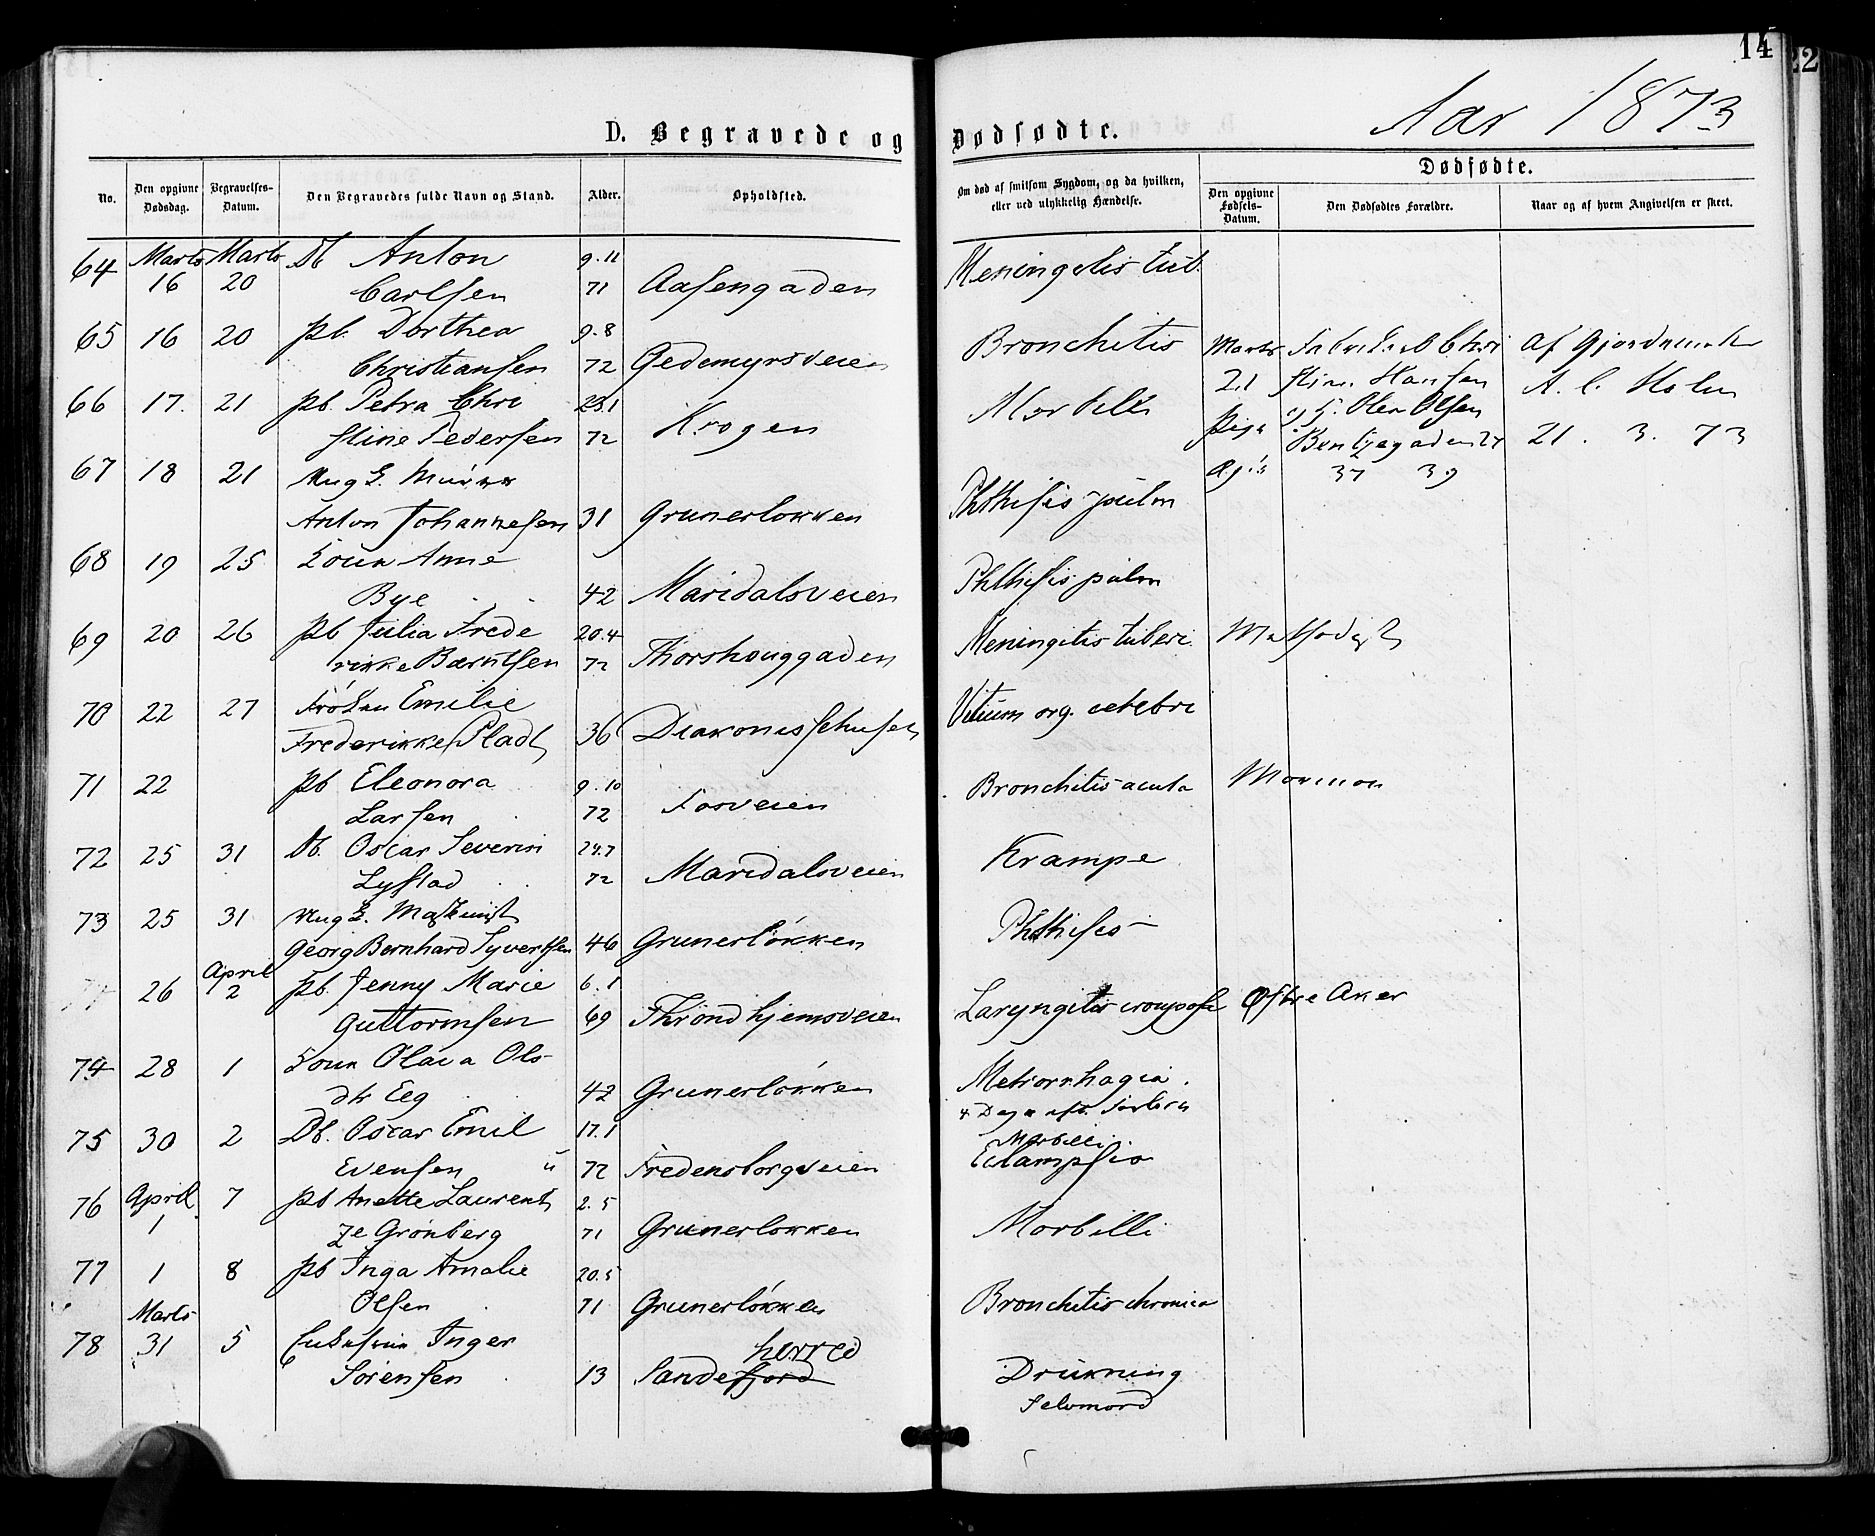 14
22
Aar 1873
D. Begravede og Dødfødte.
No. Den opgivne Dødsdag. Begravelses-Datum. Den Begravedes fulde Navn og Stand. Alder. Opholdsted. Om død af smitsom Sygdom, og da hvilken, eller ved ulykkelig Hændelse. Dødfødte. Den opgivne Fødsels-Datum. Den Dødfødtes Forældre. Naar og af hvem Angivelsen er skeet.
64 Marts 16 Marts 20 Db Anton 9.11
Carlsen 71 Aasengaden Meningitis tub.
65 16 20 pb. Dorthea 9.8
Christiansen 72 Gedemyrsveien Bronchitis
Marts 21 Chri
stine Hansen
Olsen
Pige
37 39
Af Gjordemoder
A. C. Holm
21. 3. 73
66 17. 21 pb. Petra Chri 23.1
stine Pedersen 72 Krogen Morbilli
67 18 21 Ung E. Murer
Anton Johannesen 31 Grunerløkken Phthisis pulm
68 19 25 Enke Anne
Bye 42 Maridalsveien Phthisis pulm
69 20 26 pb Julia Frede 20.4
rikke Bærntsen 72 Thorshouggaden Meningitis tuberc. Methodist
70 22 27 Frøken Emilie
Frederikke Pladt 36 Diakonissehuset Vitium org. cerebri
71 22 pb Eleonora 9.10
Larsen 72 Fosveien Bronchitis acuta Mormon
72 25 31 Db. Oscar Severin 24.7
Lystad 72 Maridalsveien Krampe
73 25 31 Ung E. Maskinist
Georg Bernhard Syvertsen 46 Grunerløkken Phthisis
26 April 2 pb. Jenny Marie 6.1
Guttormsen 69 Throndhjemsveien Laryngitis crouposa Østre Aker
74 28 1 Kone Olava Ols
dtr Eeg 42 Grunerløkken Metrorrhagia.
4 Dage eft. Forløsn
75 30 2 Db. Oscar Emil 17.1
Evensen u 72 Fredensborgveien Morbilli.
Eclampsia
76 April 1 7 pb Anette Laurent 2.5
ze Grønberg 71 Grunerløkken Morbilli
77 1 8 pb Inga Amalie 20.5
Olsen 71 Grunerløkken Bronchitis chronica
78 Marts 31 5 Inger
Sørensen 13 Sandefjord herred Drukning
Selvmord